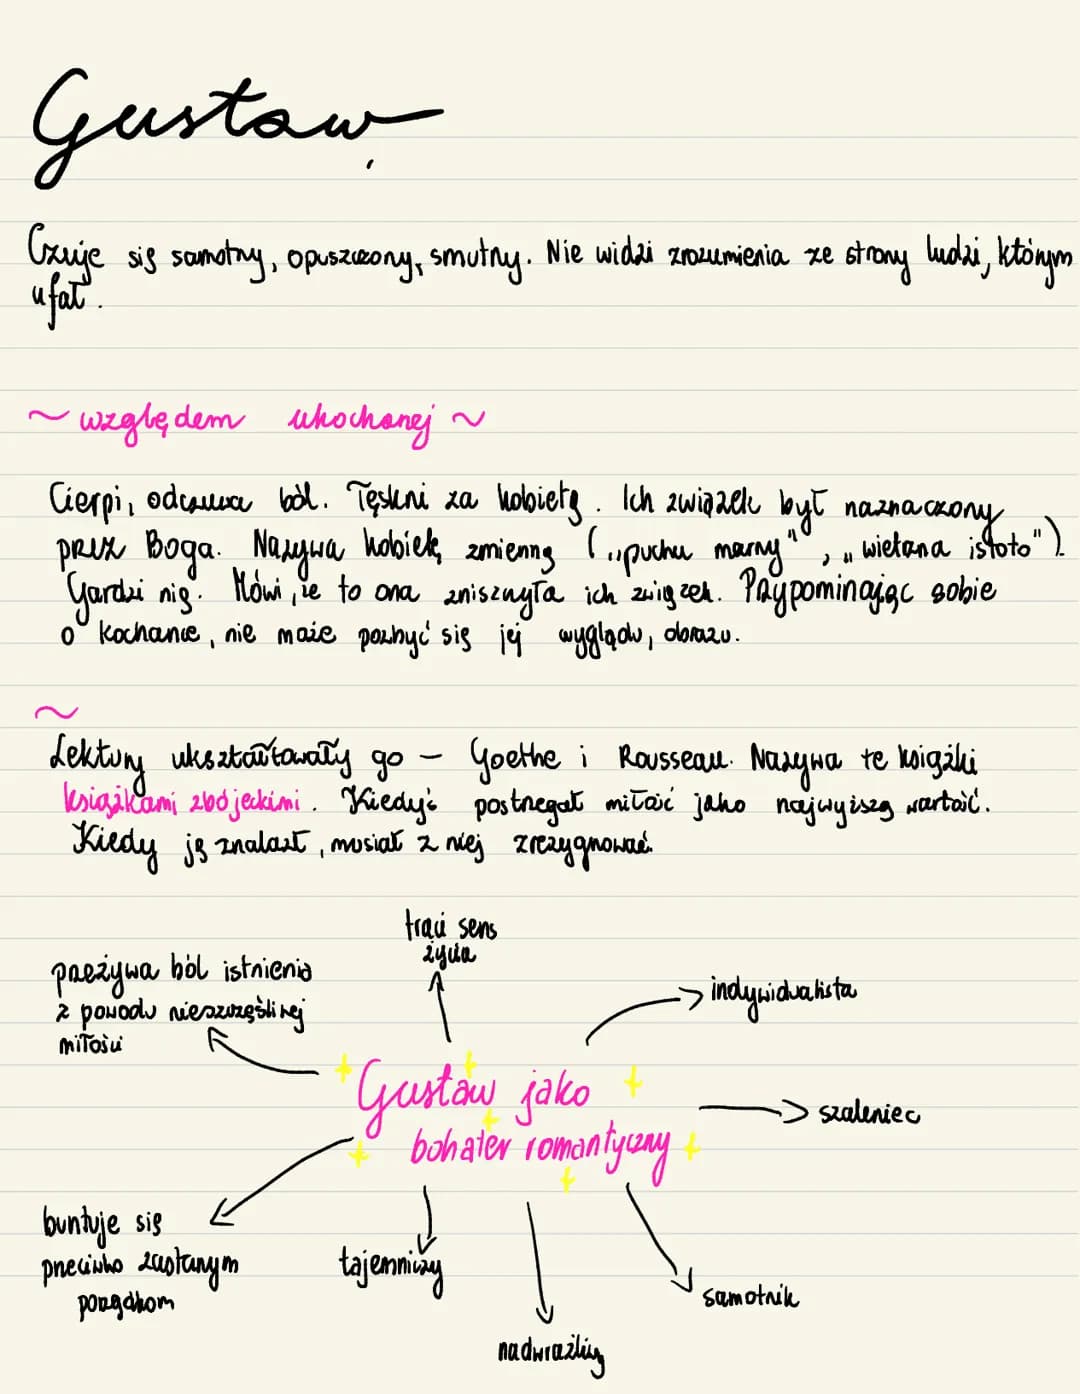 Gustaw
Czuje się samotny, opuszczony, smutny. Nie widzi zrozumienia ze strony ludzi, którym
ufał.
~ względem ukochanej ~
Cierpi, odczuwa ból. Tęskni za kobietą. Ich związek był naznaczony
przez Boga. Nazywa kobietę zmienną („puchu marny", „wietrzna istoto").
Gardzi nią. Mówi, że to ona zniszczyła ich związek. Przypominając sobie
o kochance, nie może pozbyć się jej wyglądu, obrazu.
~
Lektury ukształtowały go – Goethe i Rousseau. Nazywa te książki
książkami zbójeckimi. Kiedyś postrzegał miłość jako najwyższą wartość.
Kiedy ją znalazł, musiał z niej zrezygnować.
traci sens
życia
przeżywa ból istnienia
z powodu nieszczęśliwej
miłości
indywidualista
Gustaw jako
bohater romantyczny
szaleniec
buntuje się
przeciwko zastanym
porządkom
tajemniczy
samotnik
nadwrażliwy